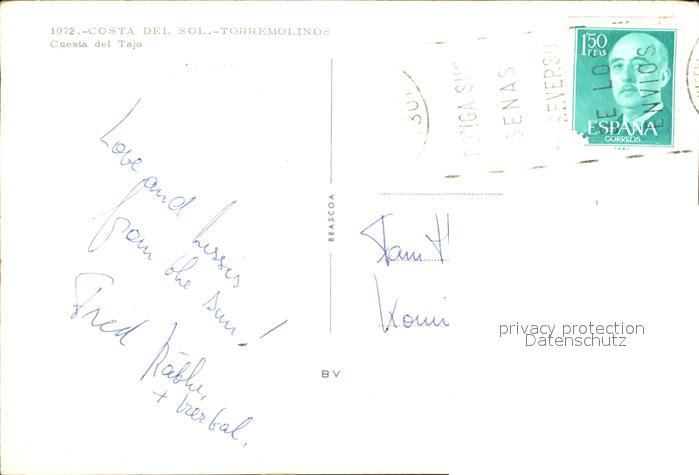 1072.-COSTA DEL SOL.-TORREMOLINOS
Cuesta del Tajo
1'50
PTAS
ESPAÑA
CORREOS
PONGA SUS
SEÑAS
REVERSO
DE LO
ENVIOS
Love and kissis
from the sun!
Fred
+
BEASCOA
BV
Fam H
privacy protection
Datenschutz